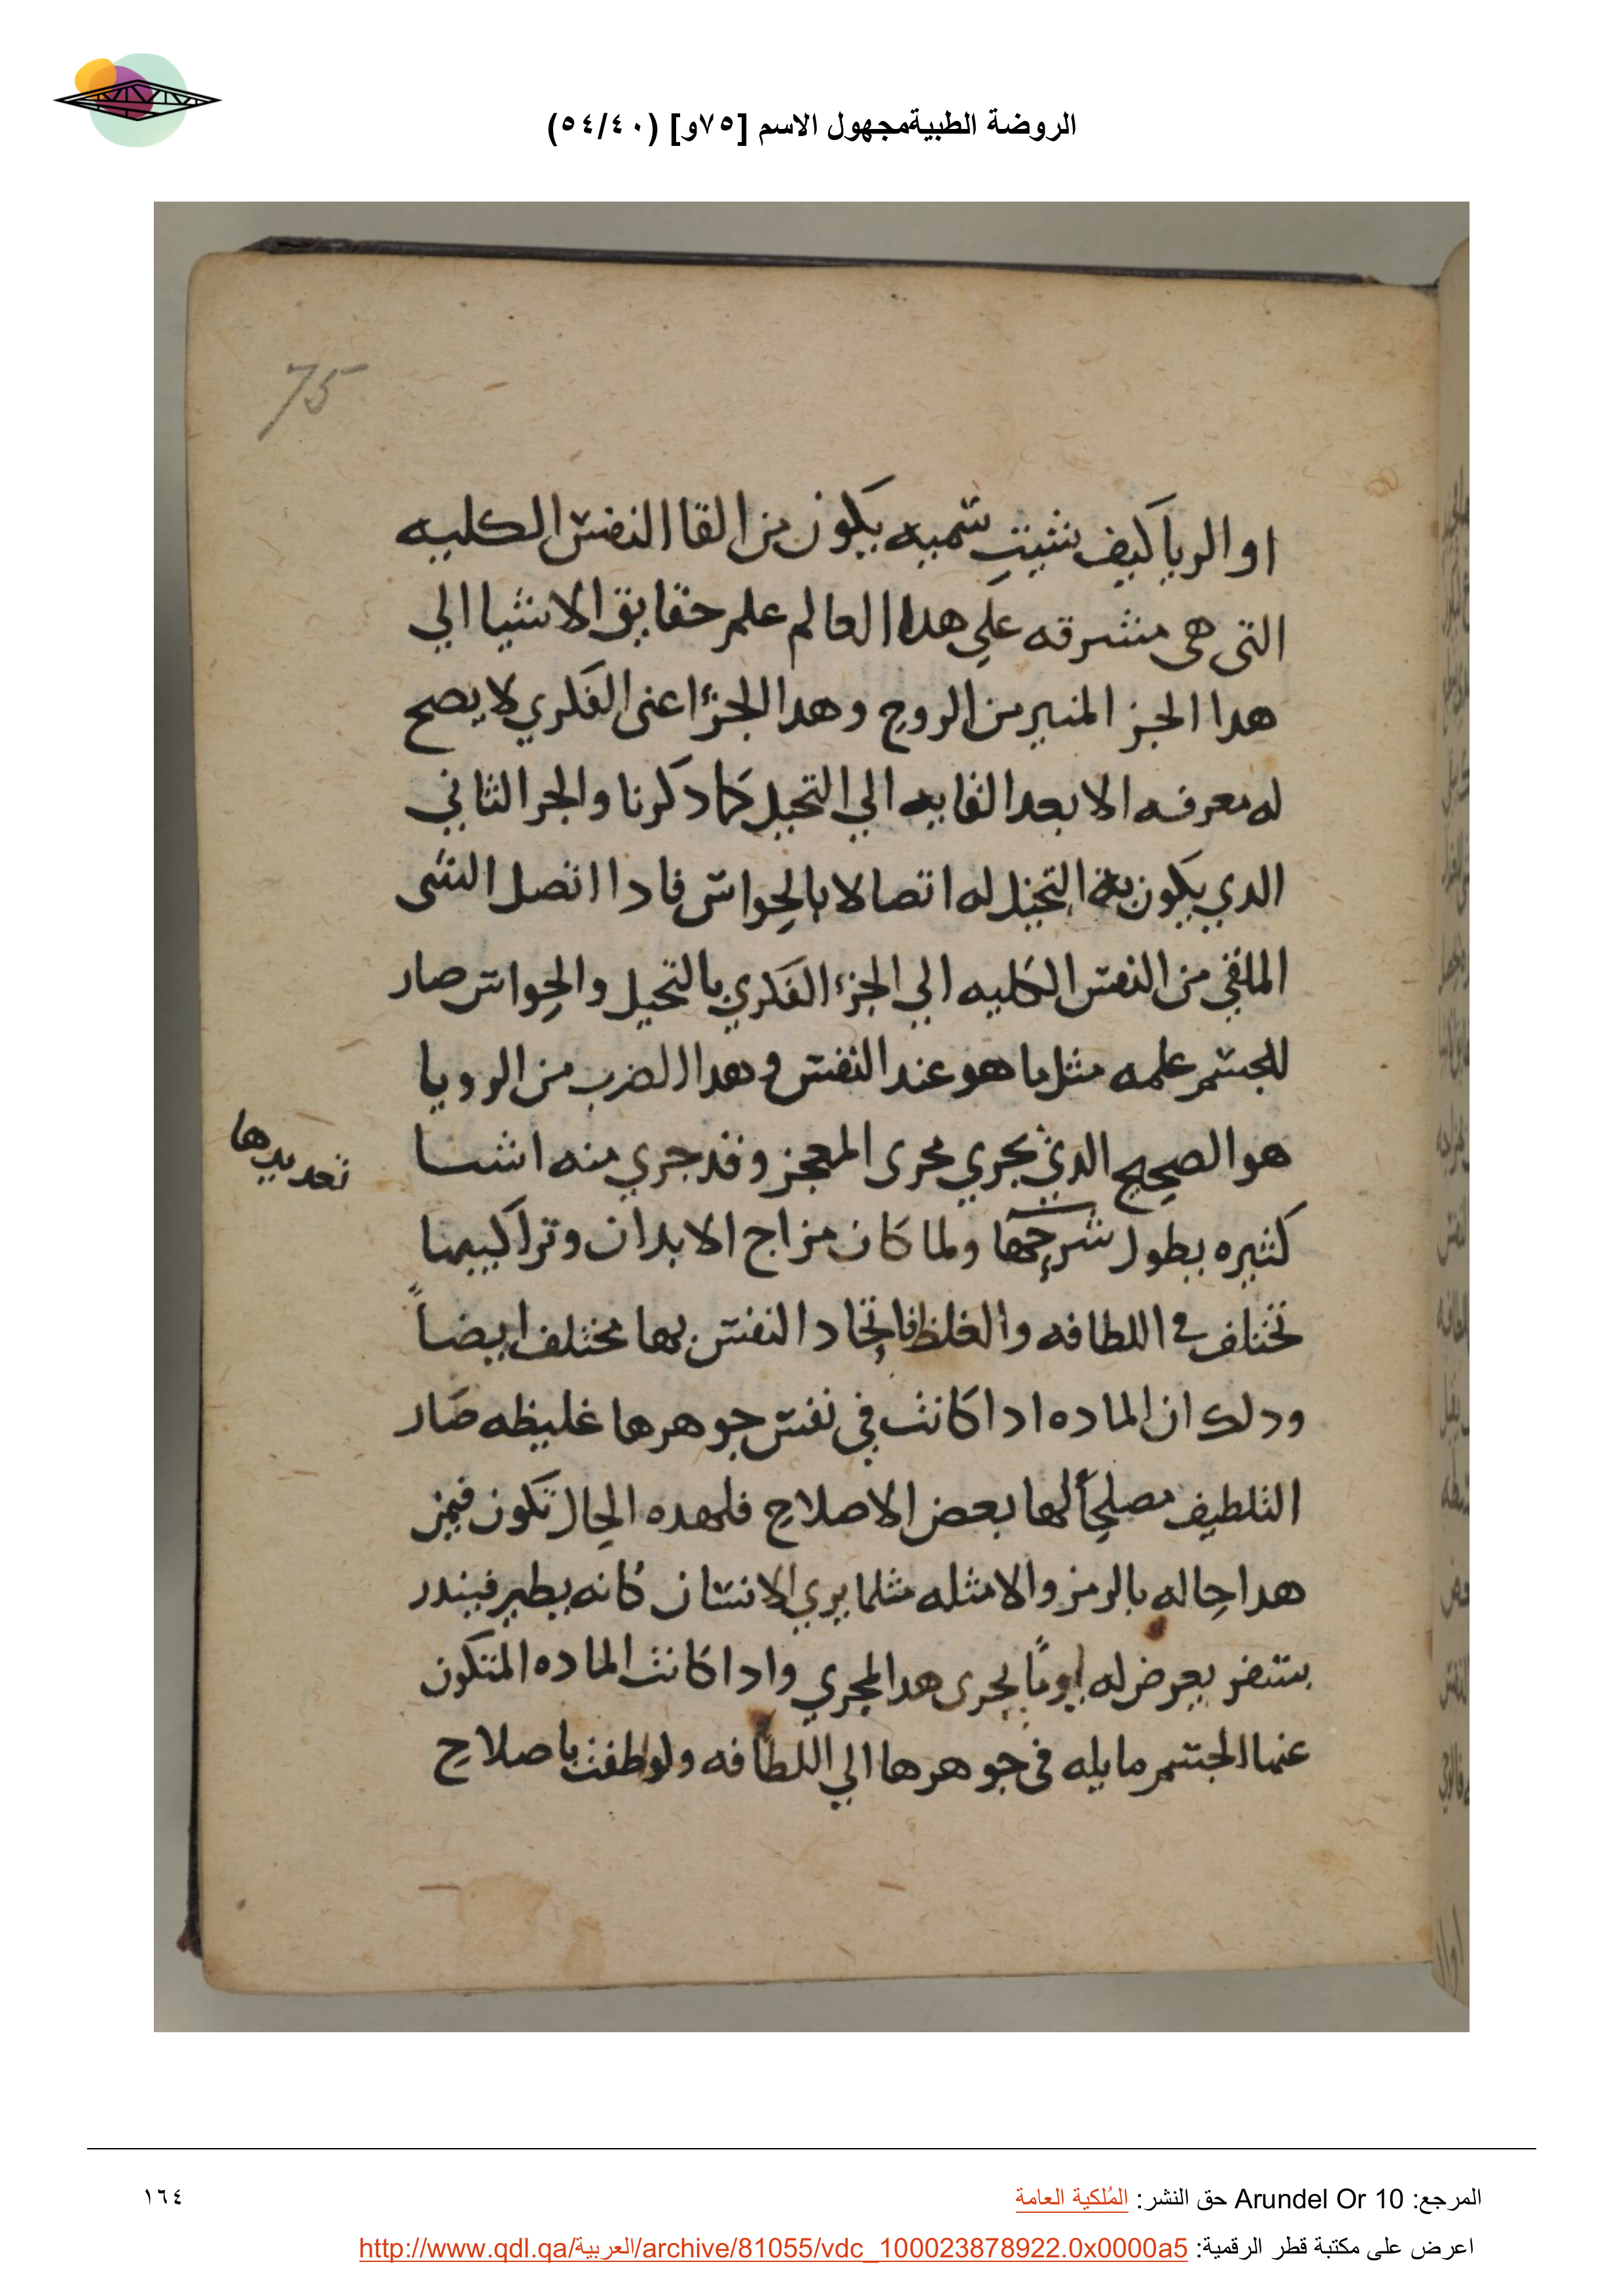 الروضة الطبيةمجهول الاسم [٧٥و] (٥٤/٤٠)
75
او الريا كيف شيت سميه يكون من القا النفس الكليه
التى هى مشرقه علي هدا العالم علم حقايق الاشيا الي
هدا الجز المنير من الروح وهدا الجزء اعنى الفكري لا يصح
له معرفه الا بعد القايه الي التخيل كما دكرنا والجز الثاني
الدي يكون به التخيل له اتصالا بالحواس فادا اتصل الشى
الملقي من النفس الكليه الي الجزء الفكري بالتخيل والحواس صار
للجسم علمه مثل ما هو عند النفس وهدا الضرب من الرويا
هو الصحيح الدي يجري مجرى المعجز وقد جري منه اشيا
تعديدها
كثيره يطول شرحها ولما كان مزاج الابدان وتراكيبها
تختلف في اللطافه والغلظ فاتحاد النفس بها مختلف ايضاً
ودلك ان الماده ادا كانت في نفس جوهرها غليظه صار
التلطيف مصلحاً لها بعض الاصلاح فلهده الحال تكون فيمن
هدا حاله بالرمز والامثله مثلما يري الانسان كانه يطير فيندر
بسفر يعرض له او ما يجرى هدا المجري وادا كانت الماده المتكون
عنها الجسم مايله فى جوهرها الي اللطافه ولطفت باصلاح
المرجع: Arundel Or 10 حق النشر: المُلكية العامة
١٦٤
اعرض على مكتبة قطر الرقمية: http://www.qdl.qa/العربية/archive/81055/vdc_100023878922.0x0000a5